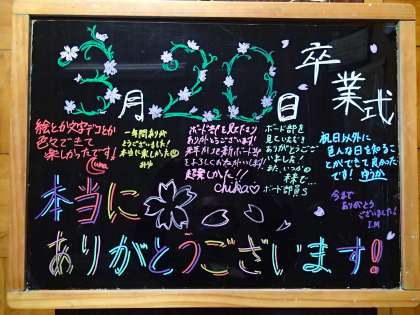 3月20日
卒業式
絵とか文字デコとか
色々できて
楽しかったです!
一年間ありが
とうございました!
本当に楽しかった
みゆ
ボード部を見て下さり
ありがとうございます!
来年からも新ボード部を
よろしくおねがいします!
超楽しかった!!
chika♡
ボード部を
見ていただき
ありがとうござ
いました!
また、いつか
未来で…
ボード部員S
祝日以外に
色んな日を知るこ
とができて良かった
です! ゆうか
今まで
ありがとう
ございました!
I.M
本当に
ありがとうございます!